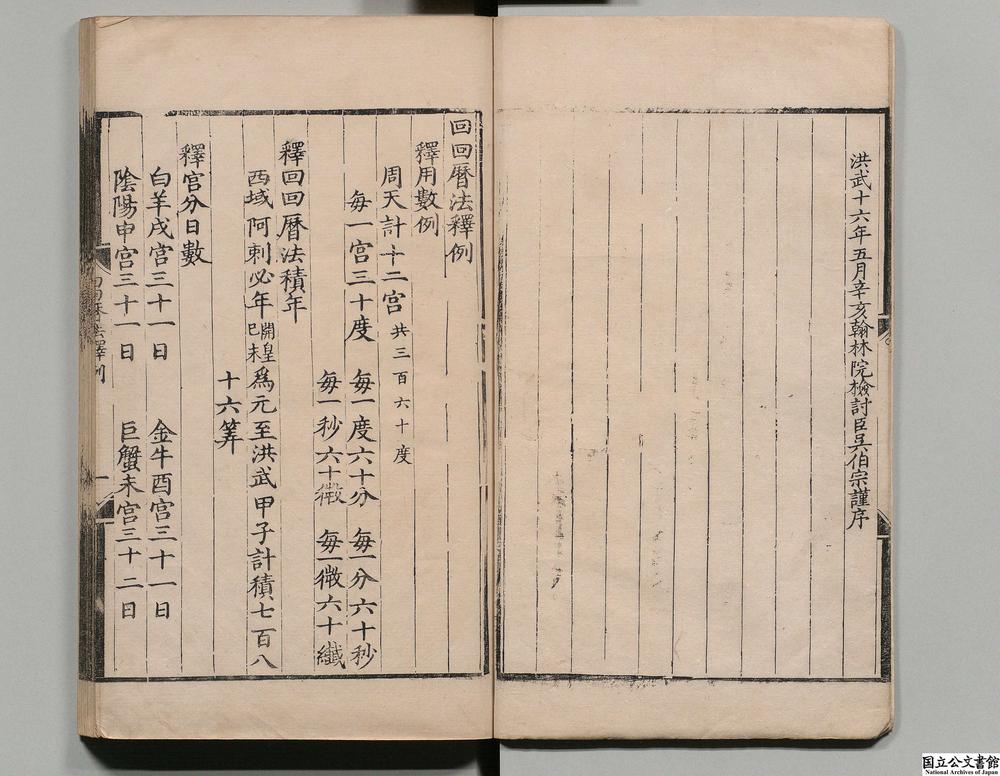 洪武十六年五月辛亥翰林院檢討臣吳伯宗謹序
回回曆法釋例
釋用數例
周天計十二宮共三百六十度
每一宮三十度 每一度六十分 每一分六十秒
每一秒六十微 每一微六十纖
釋回回曆法積年
西域阿剌必年開皇己未爲元至洪武甲子計積七百八
十六筭
釋宮分日數
白羊戌宮三十一日 金牛酉宮三十一日
陰陽申宮三十一日 巨蟹未宮三十二日
回回曆法釋例
一
国立公文書館
National Archives of Japan